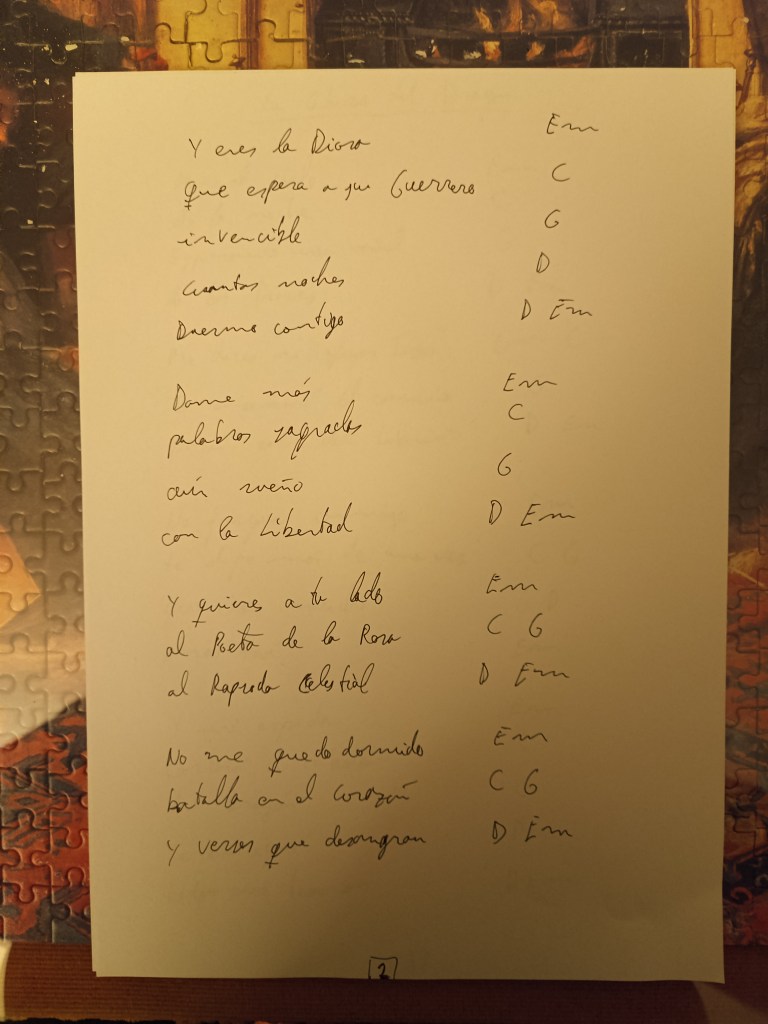 Y eres la Diosa Em
que espera a su Guerrero C
invencible G
cuantas noches D
Duermo contigo D Em
Dame más Em
palabras sagradas C
aún sueño G
con la Libertad D Em
Y quieres a tu lado Em
al Poeta de la Rosa C G
al Rapsoda Celestial D Em
No me quedo dormido Em
batalla en el corazón C G
Y versos que desangran D Em
2